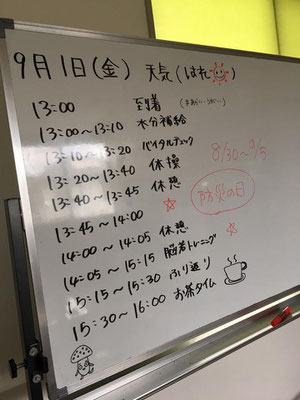 9月1日(金) 天気(はれ)
13:00 到着
13:00~13:10 水分補給
13:10~13:20 バイタルチェック
13:20~13:40 体操
13:40~13:45 休憩
13:45~14:00
14:00~14:05 休憩
14:05~15:15 脳若トレーニング
15:15~15:30 ふり返り
15:30~16:00 お茶タイム
8/30~9/5
防災の日